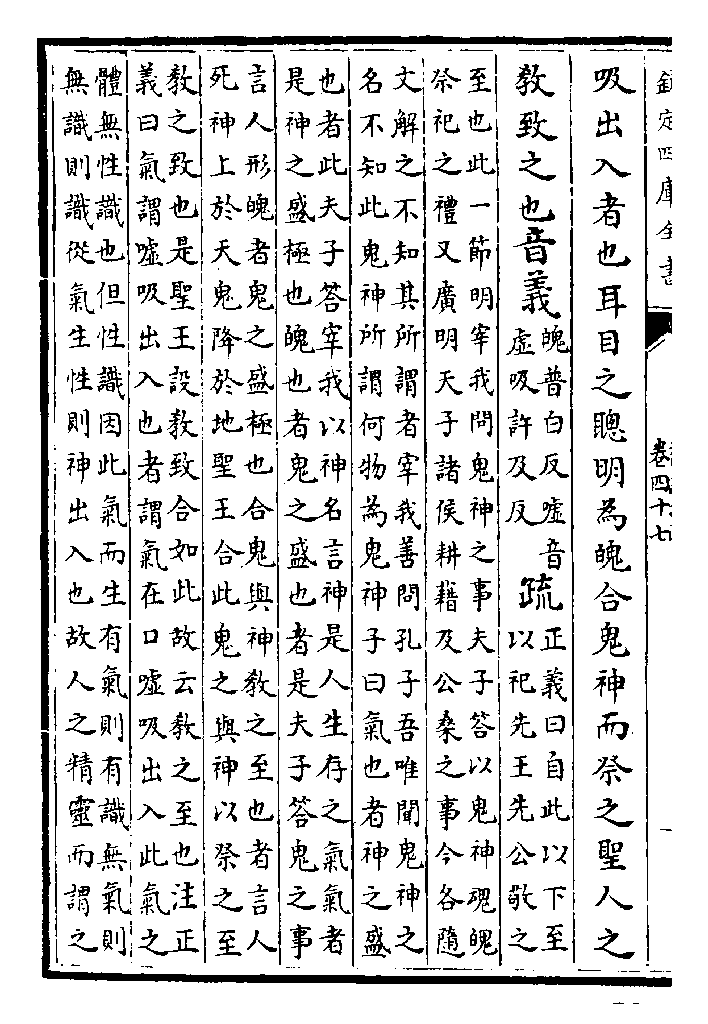 欽定四庫全書
卷四十七
吸出入者也耳目之聰明為魄合鬼神而祭之聖人之
教致之也音義
魄普白反噓音
虛吸許及反
疏
正義曰自此以下至
以祀先王先公敬之
至也此一節明宰我問鬼神之事夫子答以鬼神魂魄
祭祀之禮又廣明天子諸侯耕藉及公桑之事今各隨
文解之不知其所謂者宰我善問孔子吾唯聞鬼神之
名不知此鬼神所謂何物為鬼神子曰氣也者神之盛
也者此夫子答宰我以神名言神是人生存之氣氣者
是神之盛極也魄也者鬼之盛也者是夫子答鬼之事
言人形魄者鬼之盛極也合鬼與神教之至也者言人
死神上於天鬼降於地聖王合此鬼之與神以祭之至
教之致也是聖王設教致合如此故云教之至也注正
義曰氣謂噓吸出入也者謂氣在口噓吸出入此氣之
體無性識也但性識因此氣而生有氣則有識無氣則
無識則識從氣生性則神出入也故人之精靈而謂之